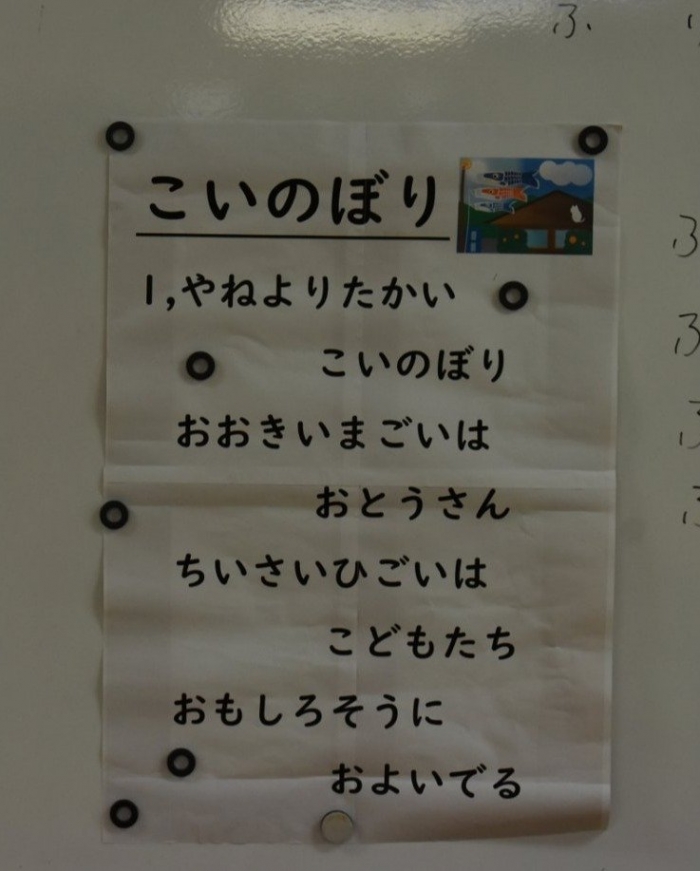 こいのぼり
1,やねよりたかい
こいのぼり
おおきいまごいは
おとうさん
ちいさいひごいは
こどもたち
おもしろそうに
およいでる
ふ